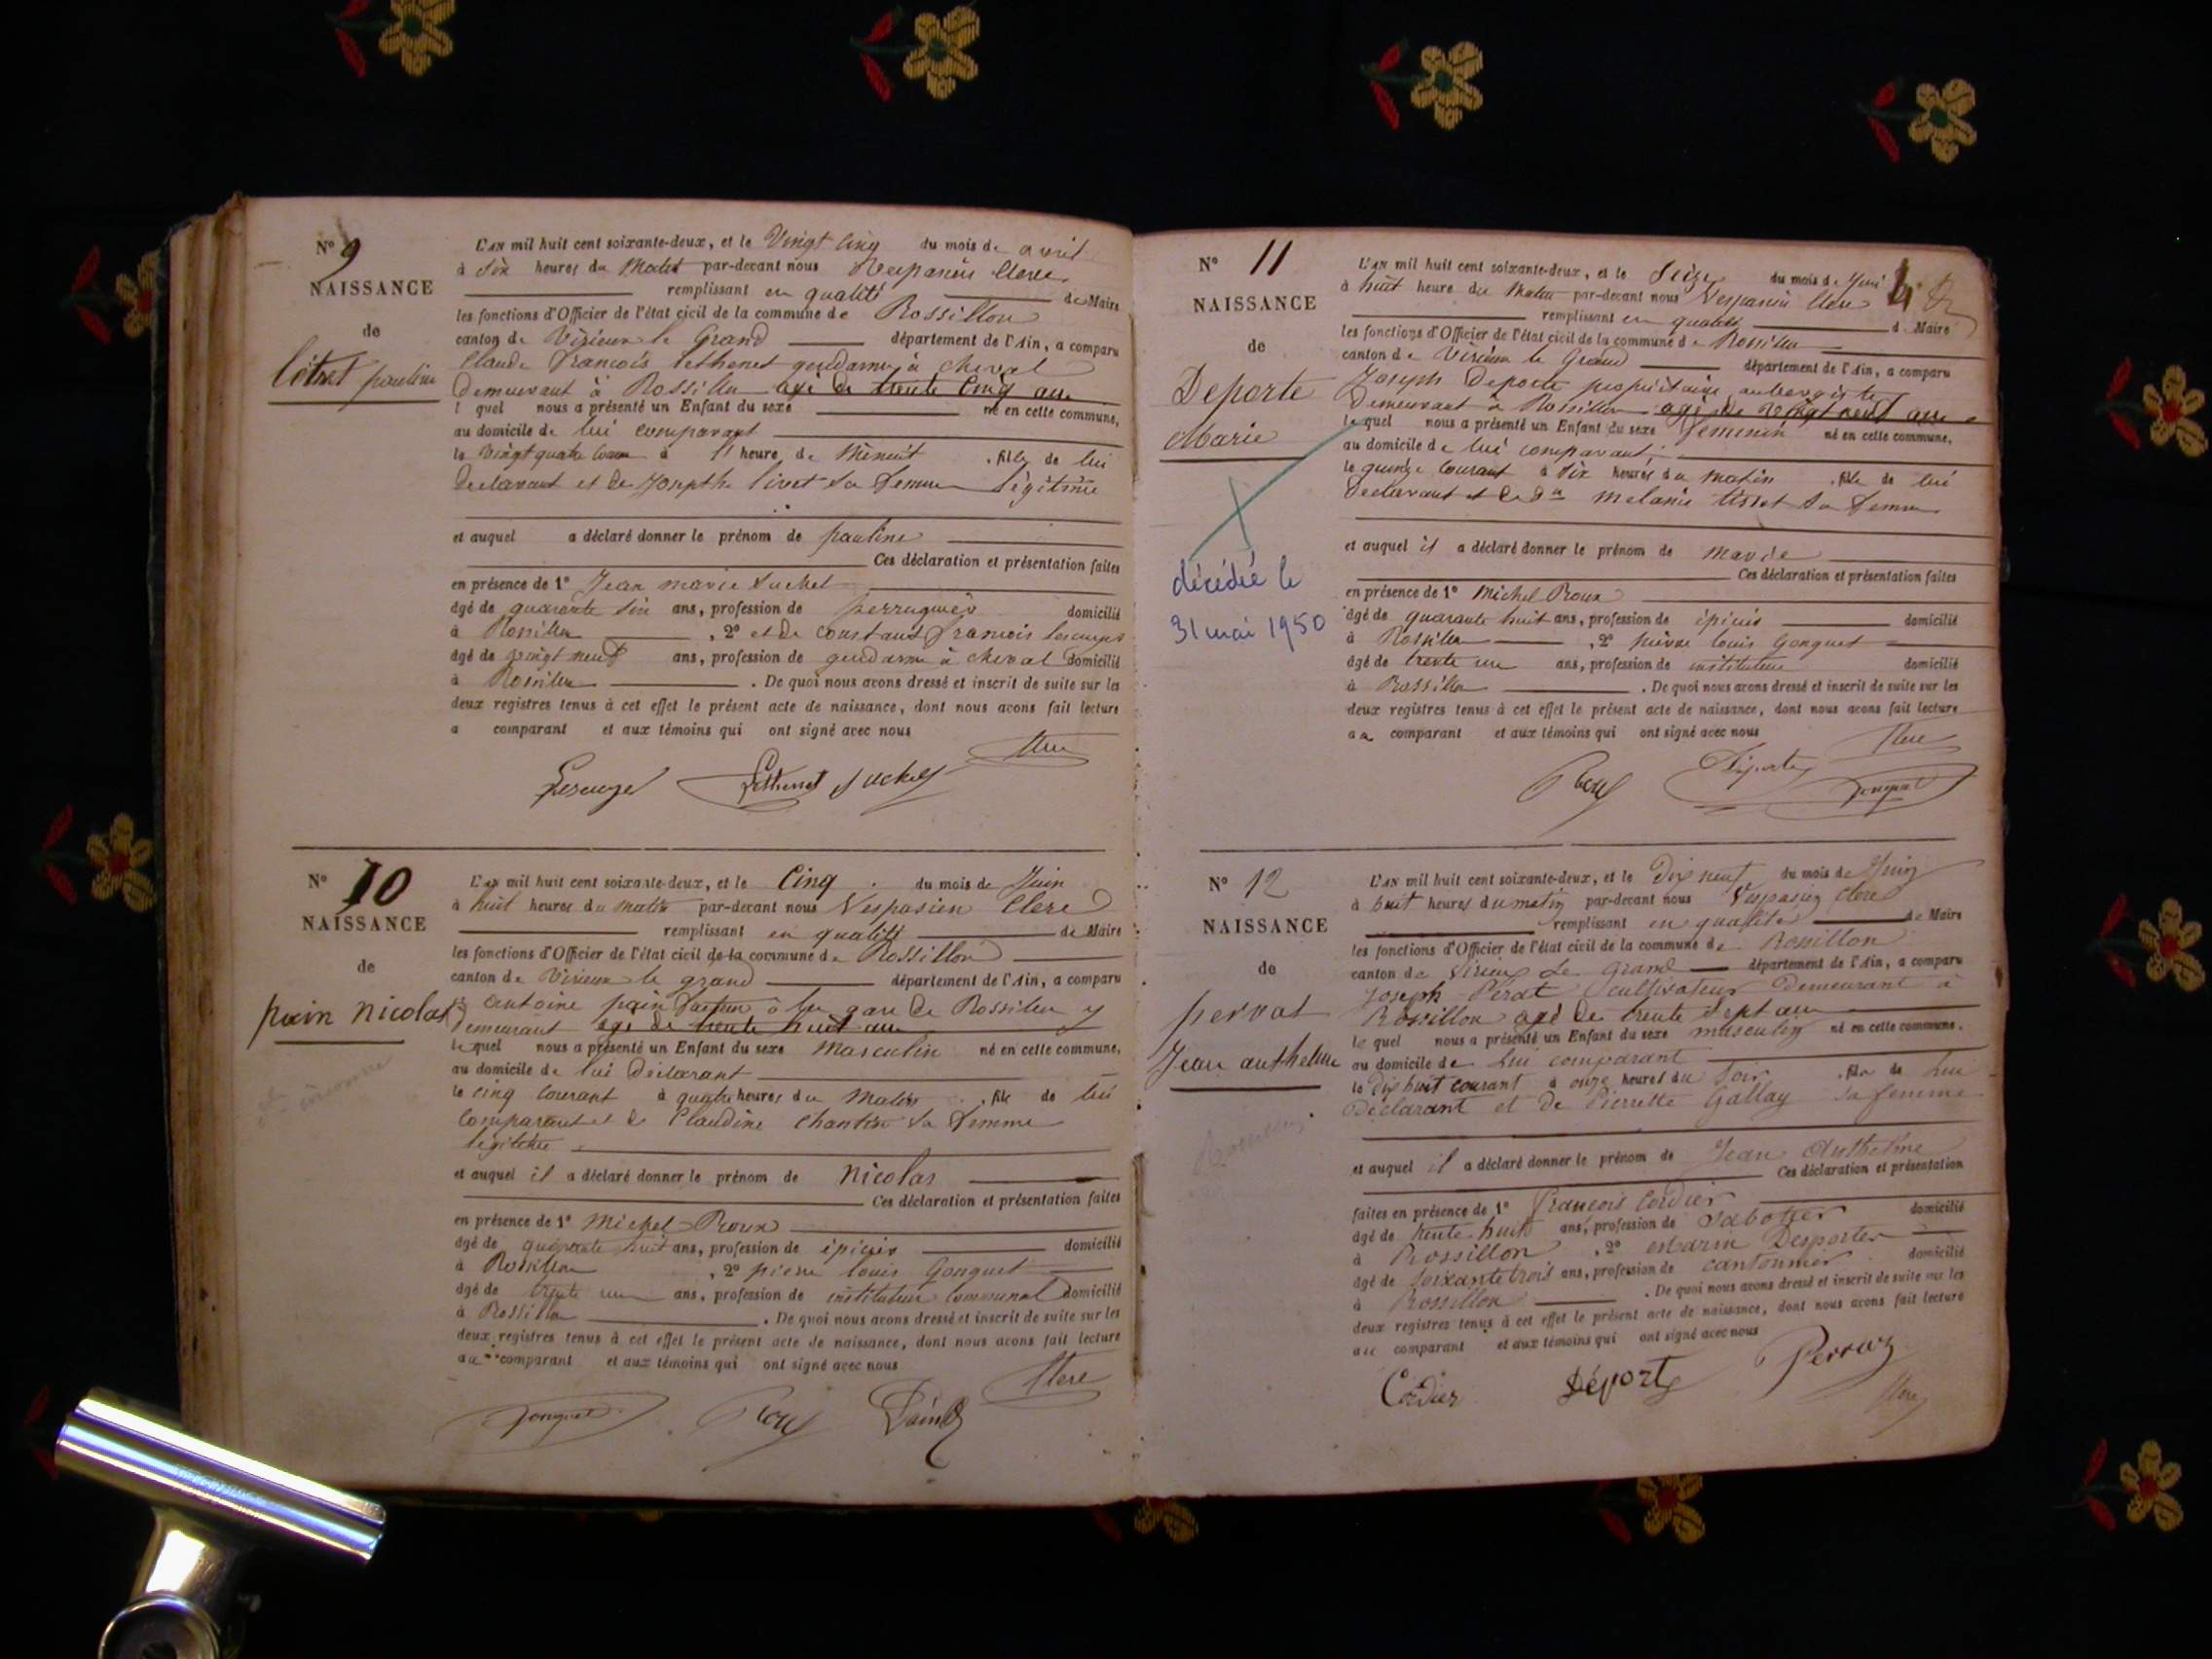 N° 9
NAISSANCE
de
pauline
L'AN mil huit cent soixante-deux, et le Vingt Cinq du mois de avril
à Six heures du Matin par-devant nous Vespasien Clerc
remplissant en qualité de Maire
les fonctions d'Officier de l'état civil de la commune de Rossillon
canton de Virieux le Grand département de l'Ain, a comparu
Claude francois Lethenet gendarme à cheval
Demeurant à Rossillon agé de trente Cinq ans
l quel nous a présenté un Enfant du sexe né en cette commune,
au domicile de lui comparant
le Vingt quatre à 11 heure de Minuit , fille de lui
Declarant et de Josepthe livet Sa femme légitime
et auquel a déclaré donner le prénom de pauline
Ces déclaration et présentation faites
en présence de 1° Jean marie Suchet
âgé de quarante Six ans, profession de perruquier domicilié
à Rossillon , 2° et de constant francois
âgé de vingt neuf ans, profession de gendarme à cheval domicilié
à Rossillon . De quoi nous avons dressé et inscrit de suite sur les
deux registres tenus à cet effet le présent acte de naissance, dont nous avons fait lecture
a comparant et aux témoins qui ont signé avec nous
Clerc
Lethenet Suchet
N° 10
NAISSANCE
de
pain Nicolas
L'AN mil huit cent soixante-deux, et le Cinq du mois de Juin
à huit heures du matin par-devant nous Vespasien Clerc
remplissant en qualité de Maire
les fonctions d'Officier de l'état civil de la commune de Rossillon
canton de Virieux le grand département de l'Ain, a comparu
antoine pain facteur à la gare de Rossillon y
Demeurant agé de trente huit ans
le quel nous a présenté un Enfant du sexe Masculin né en cette commune,
au domicile de lui Déclarant
le cinq courant à quatre heures du Matin , fils de lui
Comparant et de Claudine Chantin Sa femme
légitime
et auquel il a déclaré donner le prénom de Nicolas
Ces déclaration et présentation faites
en présence de 1° Michel Roux
âgé de quarante huit ans, profession de épicier domicilié
à Rossillon , 2° pierre louis Gonguet
âgé de trente un ans, profession de instituteur Communal domicilié
à Rossillon . De quoi nous avons dressé et inscrit de suite sur les
deux registres tenus à cet effet le présent acte de naissance, dont nous avons fait lecture
au comparant et aux témoins qui ont signé avec nous
Clerc
Gonguet Roux Pain
N° 11
NAISSANCE
de
Deporte
Marie
décédée le
31 mai 1950
L'AN mil huit cent soixante-deux, et le Seize du mois de Juin
à huit heure du Matin par-devant nous Vespasien Clerc
remplissant en qualité d Maire
les fonctions d'Officier de l'état civil de la commune d Rossillon
canton de Virieux le Grand département de l'Ain, a comparu
Joseph Deporte propriétaire aubergiste
Demeurant à Rossillon agé de vingt neuf ans
le quel nous a présenté un Enfant du sexe feminin né en cette commune,
au domicile de lui comparant,
le quinze Courant à Six heures du matin , fille de lui
Declarant et de dme Melanie tissot Sa femme
et auquel il a déclaré donner le prénom de Marie
Ces déclaration et présentation faites
en présence de 1° Michel Roux
âgé de quarante huit ans, profession de épicier domicilié
à Rossillon , 2° pierre louis Gonguet
âgé de trente un ans, profession de instituteur domicilié
à Rossillon . De quoi nous avons dressé et inscrit de suite sur les
deux registres tenus à cet effet le présent acte de naissance, dont nous avons fait lecture
au comparant et aux témoins qui ont signé avec nous
Clerc
Roux Déporte Gonguet
N° 12
NAISSANCE
de
Jean anthelme
L'AN mil huit cent soixante-deux, et le Dix neuf du mois de Juin
à huit heures du matin par-devant nous Vespasien Clerc
remplissant en qualité de Maire
les fonctions d'Officier de l'état civil de la commune de Rossillon
canton de Virieux Le Grand département de l'Ain, a comparu
Joseph cultivateur Demeurant à
Rossillon agé de trente Sept ans
le quel nous a présenté un Enfant du sexe masculin né en cette commune.
au domicile de Lui comparant
le Dix huit courant à onze heures du Soir , fils de Lui
Déclarant et de Pierrette Gallay sa femme
et auquel il a déclaré donner le prénom de Jean Anthelme
Ces déclaration et présentation
faites en présence de 1° François Cordier
âgé de trente huit ans, profession de Sabotier domicilié
à Rossillon , 2° Desportes
âgé de Soixante trois ans, profession de cantonnier domicilié
à Rossillon . De quoi nous avons dressé et inscrit de suite sur les
deux registres tenus à cet effet le présent acte de naissance, dont nous avons fait lecture
au comparant et aux témoins qui ont signé avec nous
Cordier Déporte Perroz
Clerc